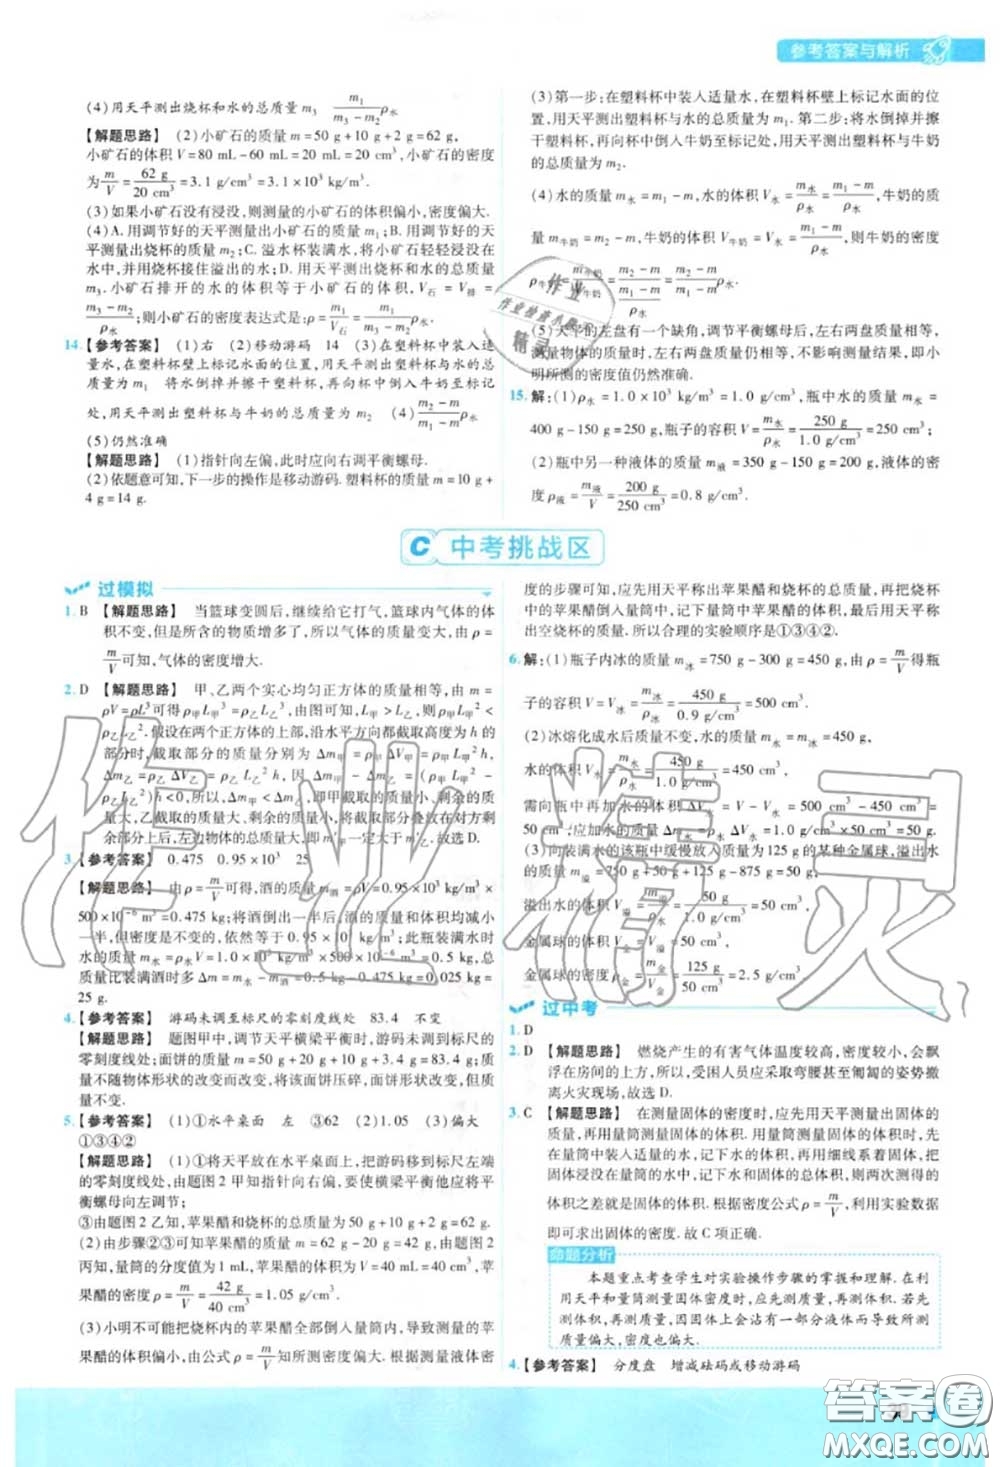 参考答案与解析
(4)用天平测出烧杯和水的总质量 m₃  m₁/(m₃-m₂) ρ水
【解题思路】 (2)小矿石的质量 m=50 g+10 g+2 g=62 g,
小矿石的体积 V=80 mL-60 mL=20 mL=20 cm³,小矿石的密度
为 m/V = 62 g/20 cm³ =3.1 g/cm³=3.1×10³ kg/m³.
(3)如果小矿石没有浸没,则测量的小矿石的体积偏小,密度偏大.
(4)A.用调节好的天平测量出小矿石的质量 m₁;B.用调节好的天
平测量出烧杯的质量 m₂;C.溢水杯装满水,将小矿石轻轻浸没在
水中,并用烧杯接住溢出的水;D.用天平测出烧杯和水的总质量
m₃.小矿石排开的水的体积等于小矿石的体积,V石=V排=
(m₃-m₂)/ρ水;则小矿石的密度表达式是:m₁/(m₃-m₂) ρ水.
14.【参考答案】 (1)右 (2)移动游码 14 (3)在塑料杯中装入适
量水,在塑料杯壁上标记水面的位置,用天平测出塑料杯与水的总
质量为 m₁ 将水倒掉并擦干塑料杯,再向杯中倒入牛奶至标记
处,用天平测出塑料杯与牛奶的总质量为 m₂ (4)(m₂-m)/(m₁-m) ρ水
(5)仍然准确
【解题思路】 (1)指针向左偏,此时应向右调平衡螺母.
(2)依题意可知,下一步的操作是移动游码.塑料杯的质量 m=10 g+
4 g=14 g.
(3)第一步:在塑料杯中装入适量水,在塑料杯壁上标记水面的位
置,用天平测出塑料杯与水的总质量为 m₁.第二步:将水倒掉并擦
干塑料杯,再向杯中倒入牛奶至标记处,用天平测出塑料杯与牛奶
的总质量为 m₂.
(4)水的质量 m水=m₁-m,水的体积 V水=m水/ρ水=(m₁-m)/ρ水,牛奶的质
量 m牛奶=m₂-m,牛奶的体积 V牛奶=V水=(m₁-m)/ρ水,则牛奶的密度
ρ牛奶=m牛奶/V牛奶=(m₂-m)/((m₁-m)/ρ水)=(m₂-m)/(m₁-m) ρ水.
(5)天平的左盘有一个缺角,调节平衡螺母后,左右两盘质量相等,
测量物体的质量时,左右两盘质量仍相等,不影响测量结果,即小
明所测的密度值仍然准确.
15.解:(1)ρ水=1.0×10³ kg/m³=1.0 g/cm³,瓶中水的质量 m水=
400 g-150 g=250 g,瓶子的容积 V=m水/ρ水=250 g/1.0 g/cm³=250 cm³;
(2)瓶中另一种液体的质量 m液=350 g-150 g=200 g,液体的密
度 ρ液=m液/V=200 g/250 cm³=0.8 g/cm³.
C 中考挑战区
过模拟
1.B 【解题思路】 当篮球变圆后,继续给它打气,篮球内气体的体
积不变,但是所含的物质增多了,所以气体的质量变大,由 ρ=
m/V可知,气体的密度增大.
2.D 【解题思路】 甲、乙两个实心均匀正方体的质量相等,由 m=
ρV=ρL³可得 ρ甲L甲³=ρ乙L乙³,由图可知,L甲>L乙,则 ρ甲L甲²<
ρ乙L乙².假设在两个正方体的上部,沿水平方向都截取高度为 h 的
部分时,截取部分的质量分别为 Δm甲=ρ甲ΔV甲=ρ甲L甲²h,
Δm乙=ρ乙ΔV乙=ρ乙L乙²h,因为 Δm甲-Δm乙=(ρ甲L甲²-
ρ乙L乙²)h<0,所以,Δm甲<Δm乙,即甲截取的质量小、剩余的质
量大,乙截取的质量大、剩余的质量小,将截取部分叠放在对方剩
余部分上后,左边物体的总质量大,即 m′甲一定大于 m′乙,故选 D.
3.【参考答案】 0.475 0.95×10³ 25
【解题思路】 由 ρ=m/V可得,酒的质量 m酒=ρ酒V=0.95×10³ kg/m³×
500×10⁻⁶ m³=0.475 kg;将酒倒出一半后,酒的质量和体积均减小
一半,但密度是不变的,依然等于 0.95×10³ kg/m³;此瓶装满水时
水的质量 m水=ρ水V=1.0×10³ kg/m³×500×10⁻⁶ m³=0.5 kg,总
质量比装满酒时多 Δm=m水-m酒=0.5 kg-0.475 kg=0.025 kg=
25 g.
4.【参考答案】 游码未调至标尺的零刻度线处 83.4 不变
【解题思路】 题图甲中,调节天平横梁平衡时,游码未调到标尺的
零刻度线处;面饼的质量 m=50 g+20 g+10 g+3.4 g=83.4 g;质
量不随物体形状的改变而改变,将该面饼压碎,面饼形状改变,质
量不变.
5.【参考答案】 (1)①水平桌面 左 ③62 (2)1.05 (3)偏大
①③④②
【解题思路】 (1)①将天平放在水平桌面上,把游码移到标尺左端
的零刻度线处,由题图 2 甲知指针向右偏,要使横梁平衡他应将平
衡螺母向左调节;
③由题图 2 乙知,苹果醋和烧杯的总质量为 50 g+10 g+2 g=62 g.
(2)由步骤②③可知,苹果醋的质量 m=62 g-20 g=42 g,由题图2
丙知,量筒的分度值为 1 mL,苹果醋的体积为 V=40 mL=40 cm³,苹
果醋的密度 ρ=m/V=42 g/40 cm³=1.05 g/cm³.
(3)小明不可能把烧杯内的苹果醋全部倒入量筒内,导致测量的苹
果醋的体积偏小,由公式 ρ=m/V知密度偏大.根据测量液体密
度的步骤可知,应先用天平称出苹果醋和烧杯的总质量,再把烧杯
中的苹果醋倒入量筒中,记下量筒中苹果醋的体积,最后用天平称
出空烧杯的质量.所以合理的实验顺序是①③④②.
6.解:(1)瓶子内冰的质量 m冰=750 g-300 g=450 g,由 ρ=m/V得瓶
子的容积 V=V冰=m冰/ρ冰=450 g/0.9 g/cm³=500 cm³;
(2)冰熔化成水后质量不变,m水=m冰=450 g,
水的体积 V水=m水/ρ水=450 g/1.0 g/cm³=450 cm³,
需向瓶中再加水的体积 ΔV=V-V水=500 cm³-450 cm³=
50 cm³;应加水的质量 Δm=ρ水ΔV=1.0 g/cm³×50 cm³=50 g.
(3)向装满水的该瓶中缓慢放入质量为125 g的某种金属球,溢出水
的质量 m溢=750 g+50 g+125 g-875 g=50 g,
溢出水的体积 V溢=m溢/ρ水=50 g/1.0 g/cm³=50 cm³,
金属球的体积 V金=V溢=50 cm³,
金属球的密度 ρ金=m金/V金=125 g/50 cm³=2.5 g/cm³.
过中考
1.D
2.D 【解题思路】 燃烧产生的有害气体温度较高,密度较小,会飘
浮在房间的上方,所以,受困人员应采取弯腰或匍匐的姿势撤
离火灾现场,故选 D.
3.C 【解题思路】 在测量固体的密度时,应先用天平测量出固体的
质量,再用量筒测量固体的体积.用量筒测量固体的体积时,先
在量筒中装入适量水,记下水的体积,再用细线系着固体,把
固体浸没在量筒的水中,记下水和固体的总体积,则两次测得的
体积之差就是固体的体积.根据密度公式 ρ=m/V,利用实验数据
即可求出固体的密度.故 C 项正确.
命题分析
本题重点考查学生对实验操作步骤的掌握和理解.在利
用天平和量筒测量固体密度时,应先测质量,再测体积.若先
测体积,再测质量,会因固体上会沾有一部分液体而导致所测
质量偏大,密度也偏大.
4.【参考答案】 分度盘 增减砝码或移动游码
作业检查小助手
精灵
作业精灵
答案圈
MXQE.COM